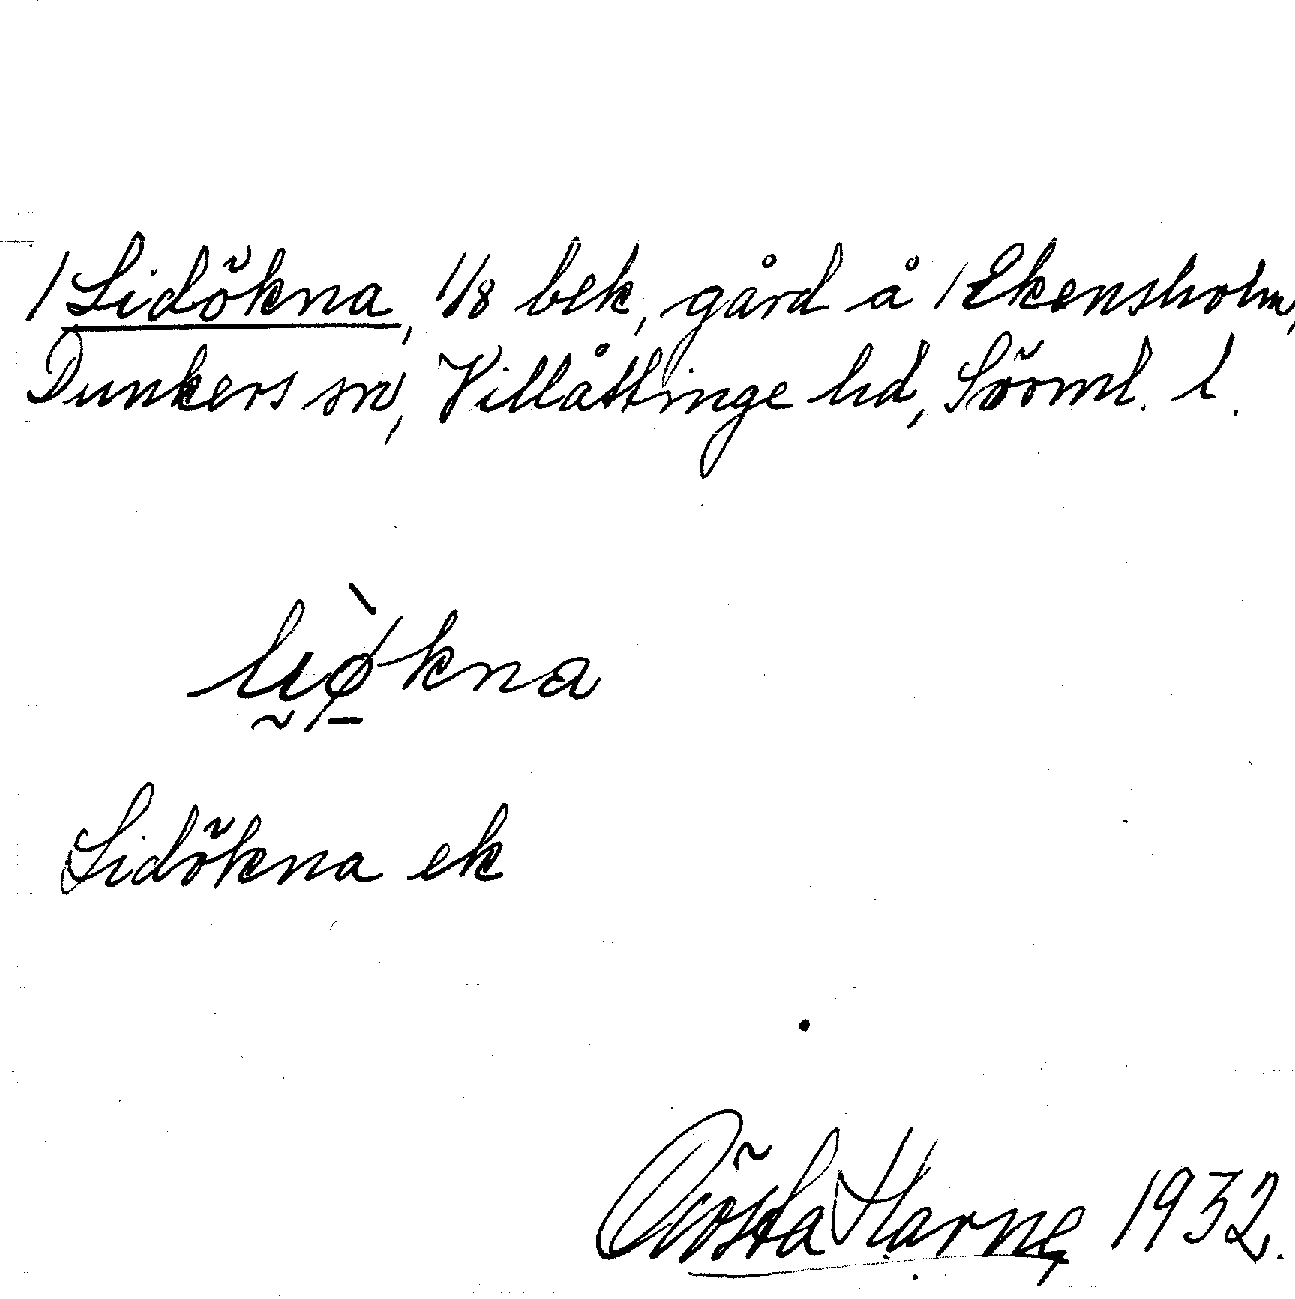 /Lidökna, 1/8 bek, gård å /Ekensholm,
Dunkers sn, Villåttinge hd, Sörml. l.
Lidökna ek
Gösta Harne 1932.